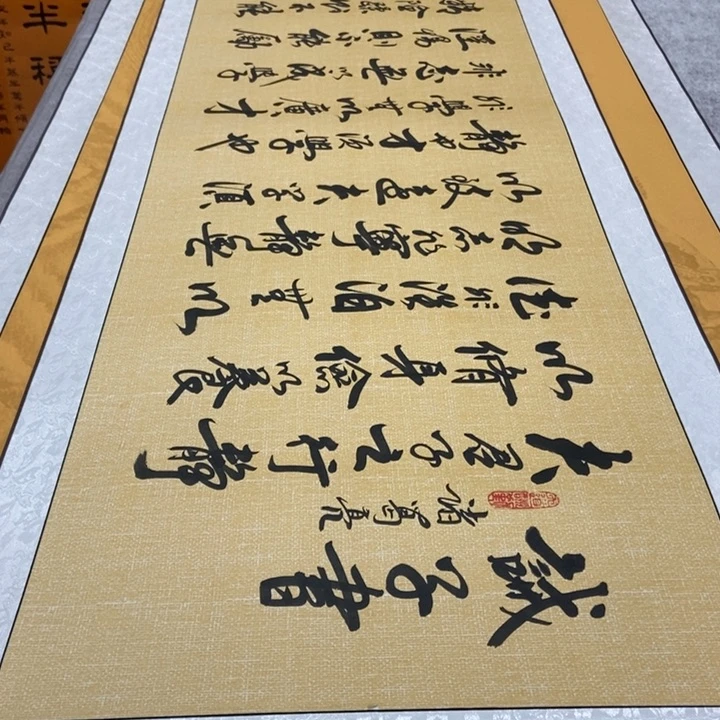 誡子書
諸葛亮
夫君子之行靜
以修身儉以養
德非澹泊無以
明志非寧靜無
以致遠夫學須
靜也才須學也
非學無以廣才
非志無以成學
淫慢則不能勵
精險躁則不能
半